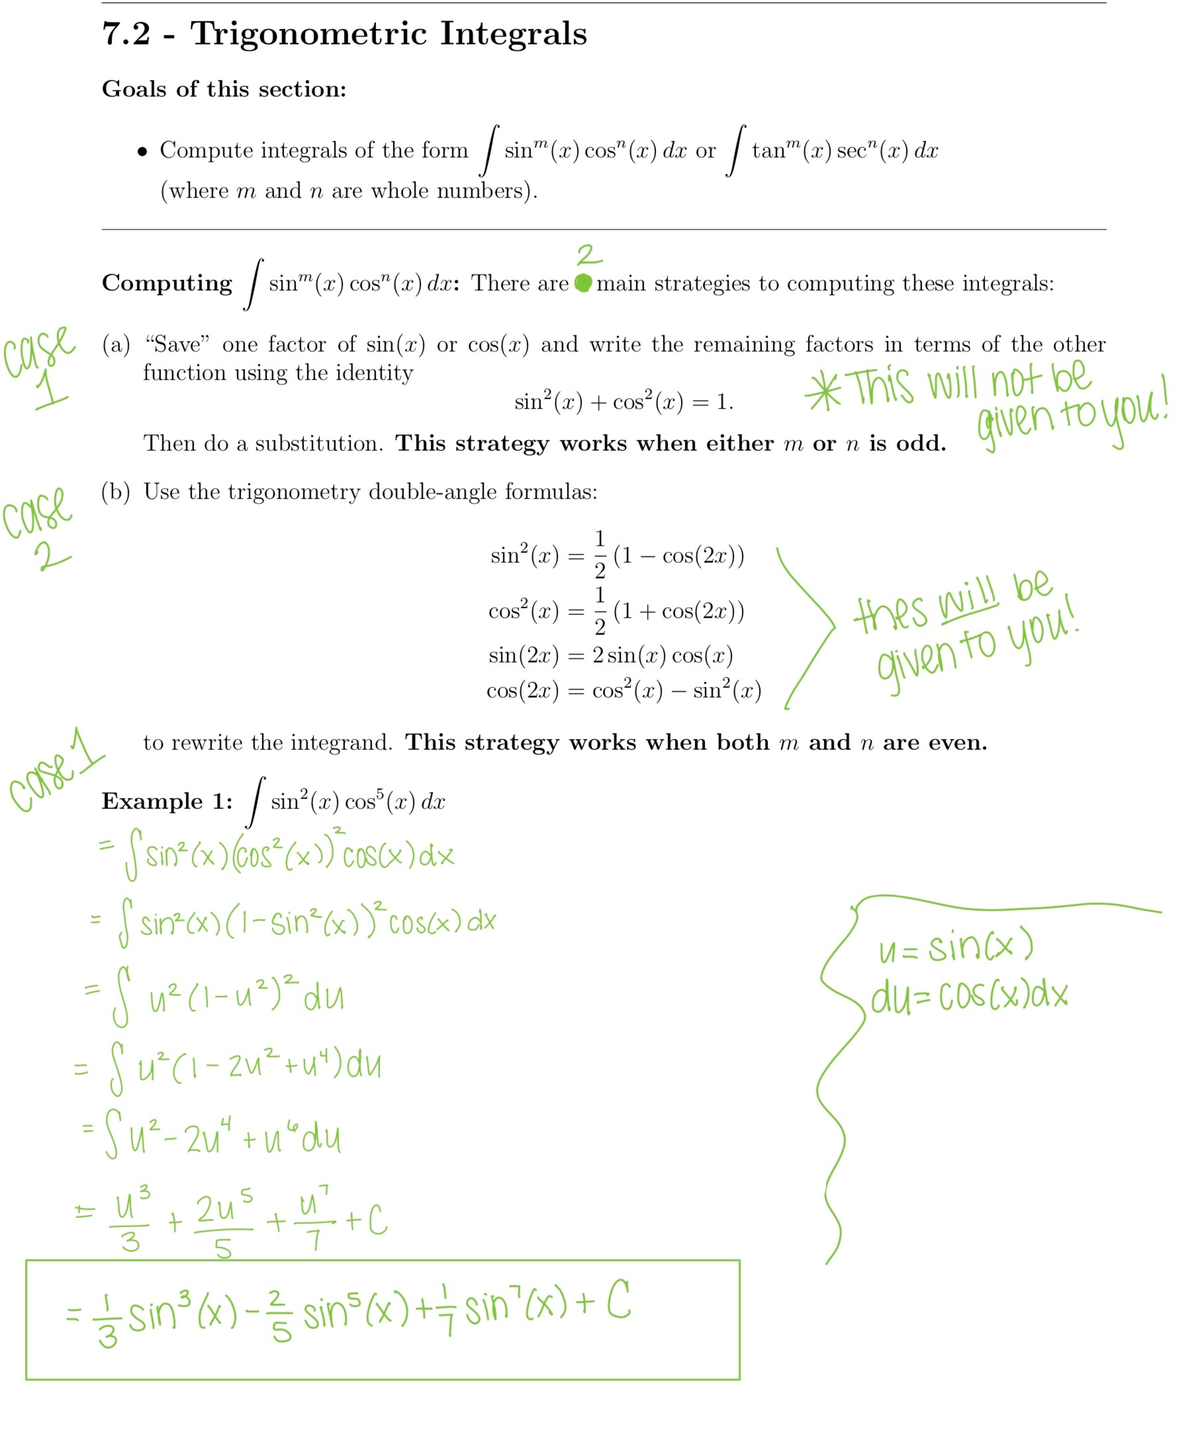 7.2 - Trigonometric Integrals
Goals of this section:
• Compute integrals of the form ∫ sinᵐ(x) cosⁿ(x) dx or ∫ tanᵐ(x) secⁿ(x) dx
(where m and n are whole numbers).
2
Computing ∫ sinᵐ(x) cosⁿ(x) dx: There are main strategies to computing these integrals:
case 1
(a) “Save” one factor of sin(x) or cos(x) and write the remaining factors in terms of the other
function using the identity
sin²(x) + cos²(x) = 1.
* This will not be
given to you!
Then do a substitution. This strategy works when either m or n is odd.
case 2
(b) Use the trigonometry double-angle formulas:
sin²(x) = 1/2 (1 − cos(2x))
cos²(x) = 1/2 (1 + cos(2x))
sin(2x) = 2 sin(x) cos(x)
cos(2x) = cos²(x) − sin²(x)
thes will be
given to you!
to rewrite the integrand. This strategy works when both m and n are even.
case 1
Example 1: ∫ sin²(x) cos⁵(x) dx
= ∫ sin²(x)(cos²(x))² cos(x) dx
= ∫ sin²(x)(1-sin²(x))² cos(x) dx
u = sin(x)
du = cos(x)dx
= ∫ u²(1-u²)² du
= ∫ u²(1-2u²+u⁴)du
= ∫ u²-2u⁴+u⁶du
= u³/3 + 2u⁵/5 + u⁷/7 + C
= 1/3 sin³(x) - 2/5 sin⁵(x) + 1/7 sin⁷(x) + C